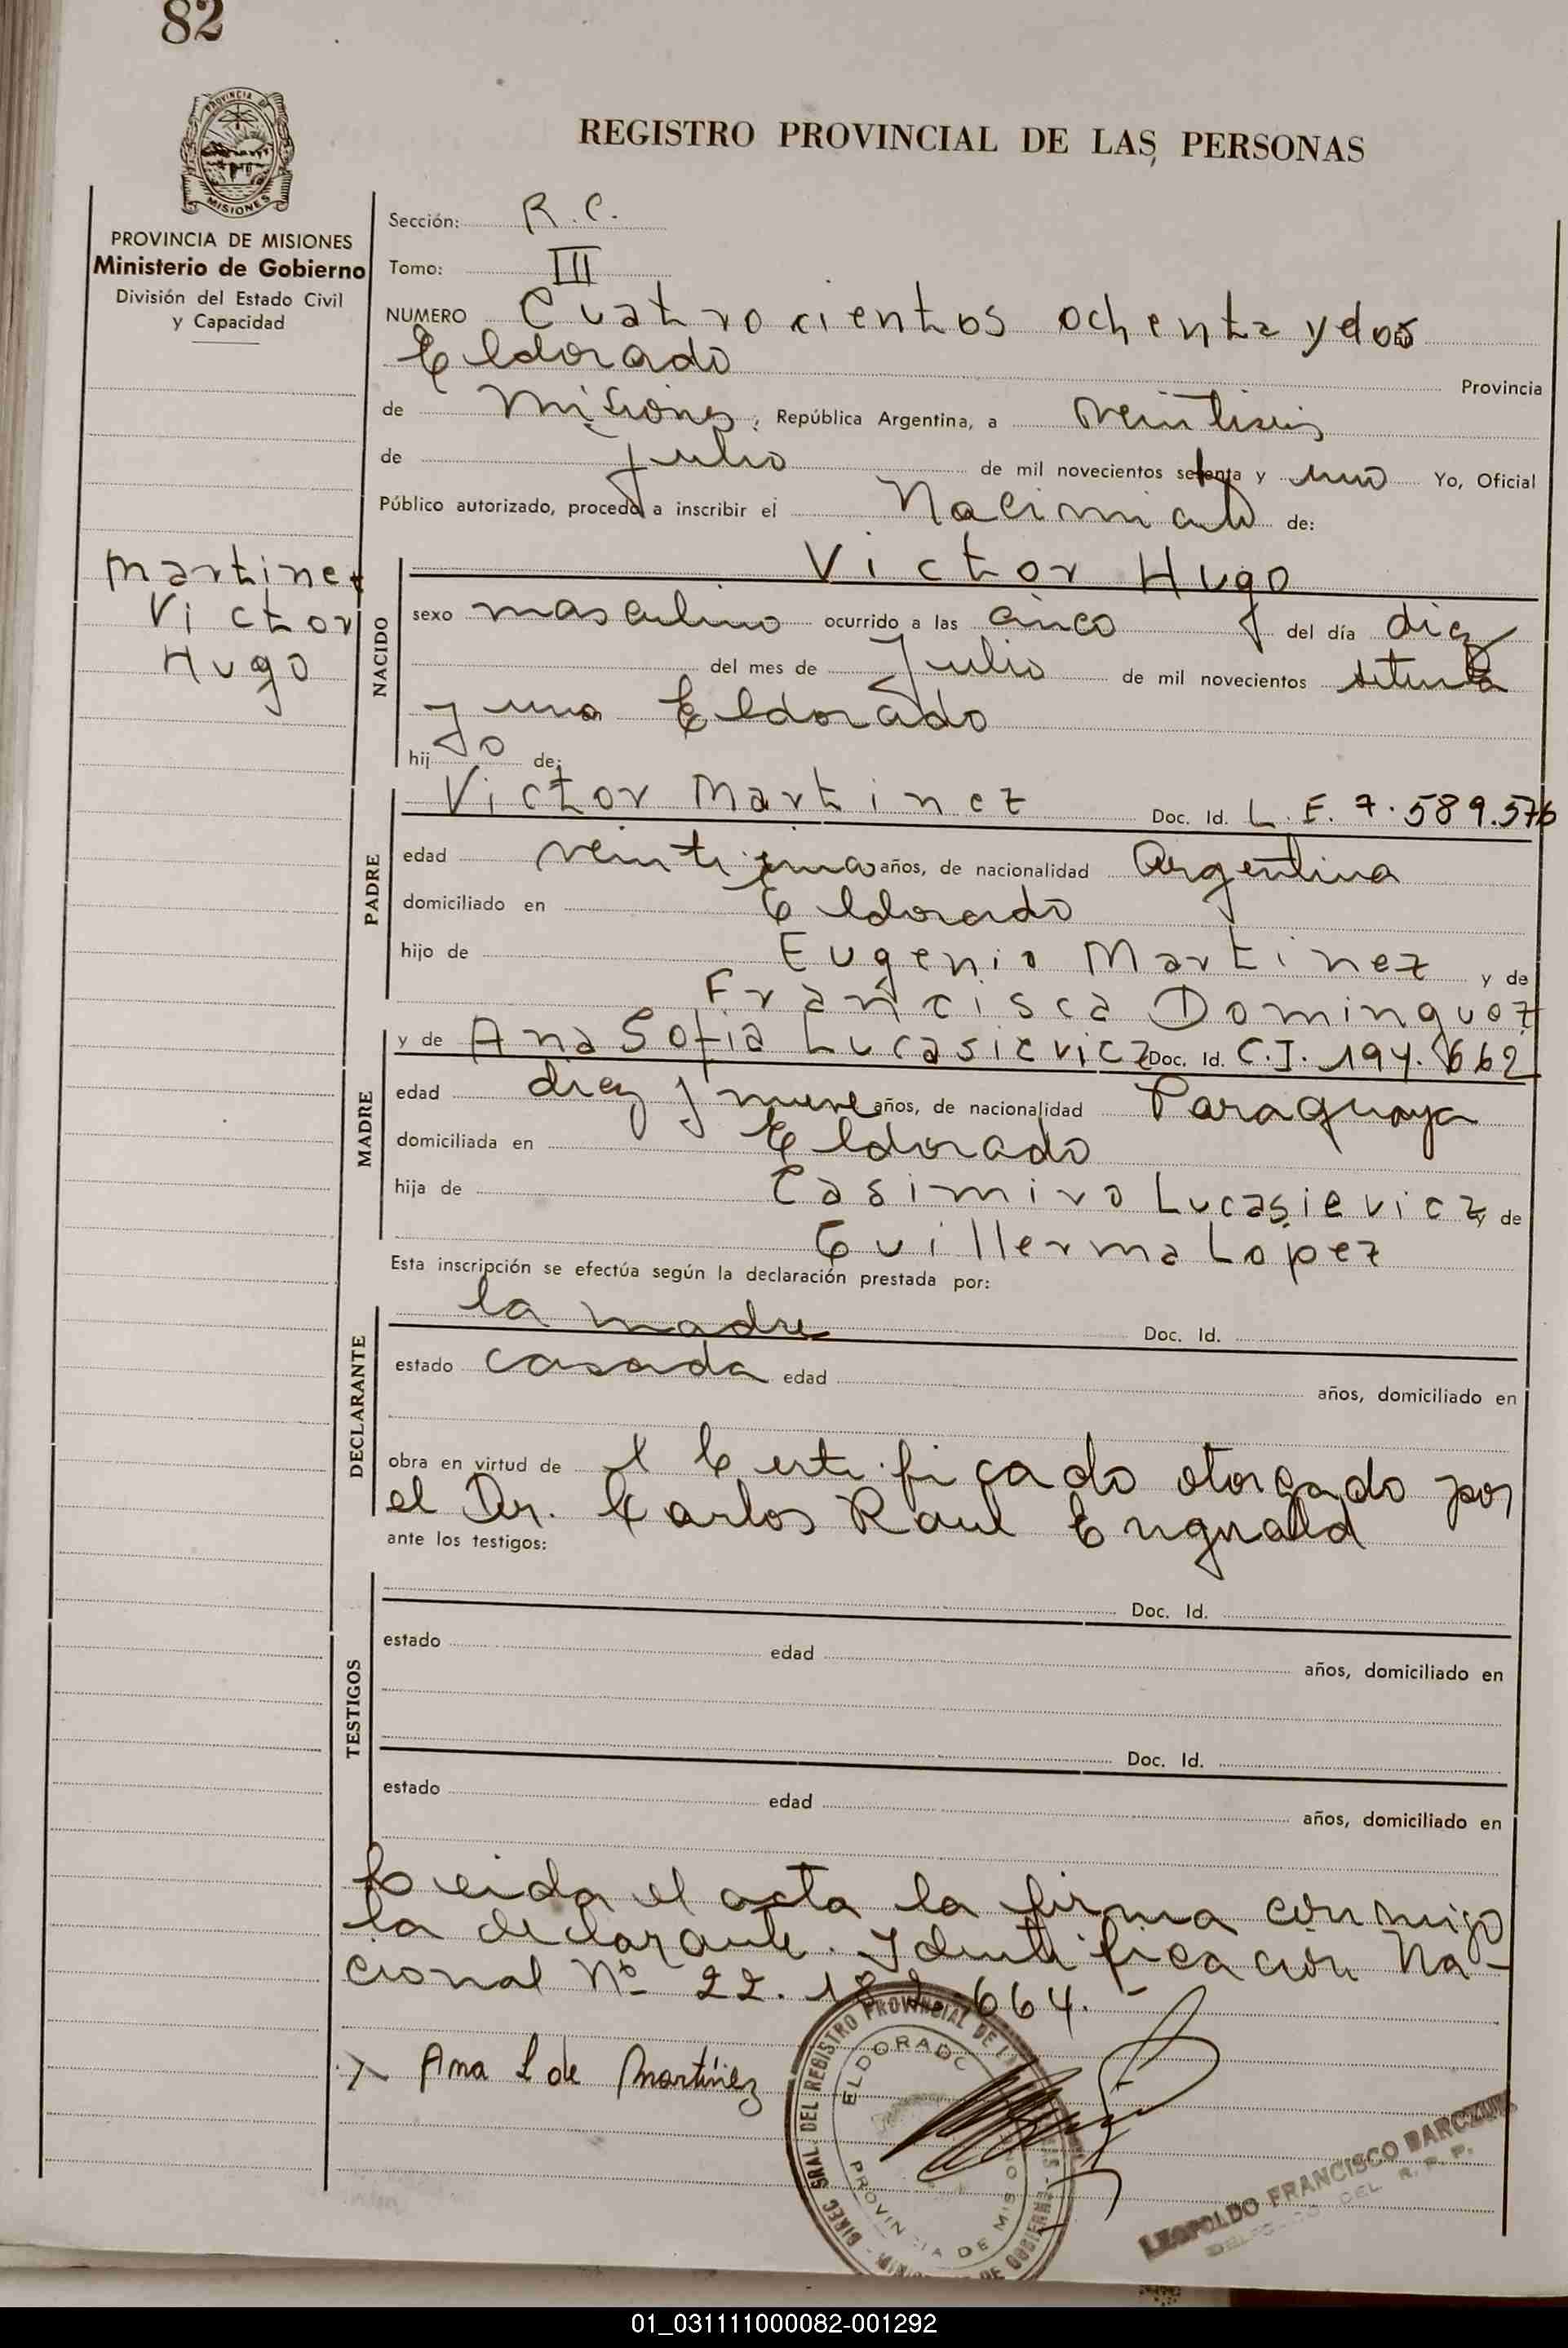 82
PROVINCIA DE
MISIONES
REGISTRO PROVINCIAL DE LAS PERSONAS
PROVINCIA DE MISIONES
Ministerio de Gobierno
División del Estado Civil
y Capacidad
Sección: R. C.
Tomo: III
NUMERO Cuatrocientos ochenta y dos
Eldorado Provincia
de Misiones, República Argentina, a veintiseis
de Julio de mil novecientos setenta y uno Yo, Oficial
Público autorizado, procedo a inscribir el Nacimiento de:
Martinez
Victor
Hugo
NACIDO
Victor Hugo
sexo masculino ocurrido a las cinco del día diez
del mes de Julio de mil novecientos setenta
y uno Eldorado
hijo de:
PADRE
Victor Martinez Doc. Id. L. E. 7.589.576
edad veinti años, de nacionalidad Argentina
domiciliado en Eldorado
hijo de Eugenio Martinez y de
Francisca Dominguez
MADRE
y de Ana Sofia Lucasievicz Doc. Id. C.I. 194.662
edad diez y nueve años, de nacionalidad Paraguaya
domiciliada en Eldorado
hija de Casimiro Lucasievicz y de
Guillerma Lopez
Esta inscripción se efectúa según la declaración prestada por:
DECLARANTE
la madre Doc. Id.
estado casada edad años, domiciliado en
obra en virtud de el Certificado otorgado por
el Dr. Carlos Raul
ante los testigos:
TESTIGOS
Doc. Id.
estado edad años, domiciliado en
Doc. Id.
estado edad años, domiciliado en
Leida el acta la firma conmigo
la declarante. Identificación Na-
cional Nº 22. 664.-
Ana L de Martínez
DIREC. GRAL. DEL REGISTRO PROVINCIAL DE
ELDORADO
PROVINCIA DE MISIONES
DE GOBIERNO
LEOPOLDO FRANCISCO
DEL R. P. P.
01_031111000082-001292